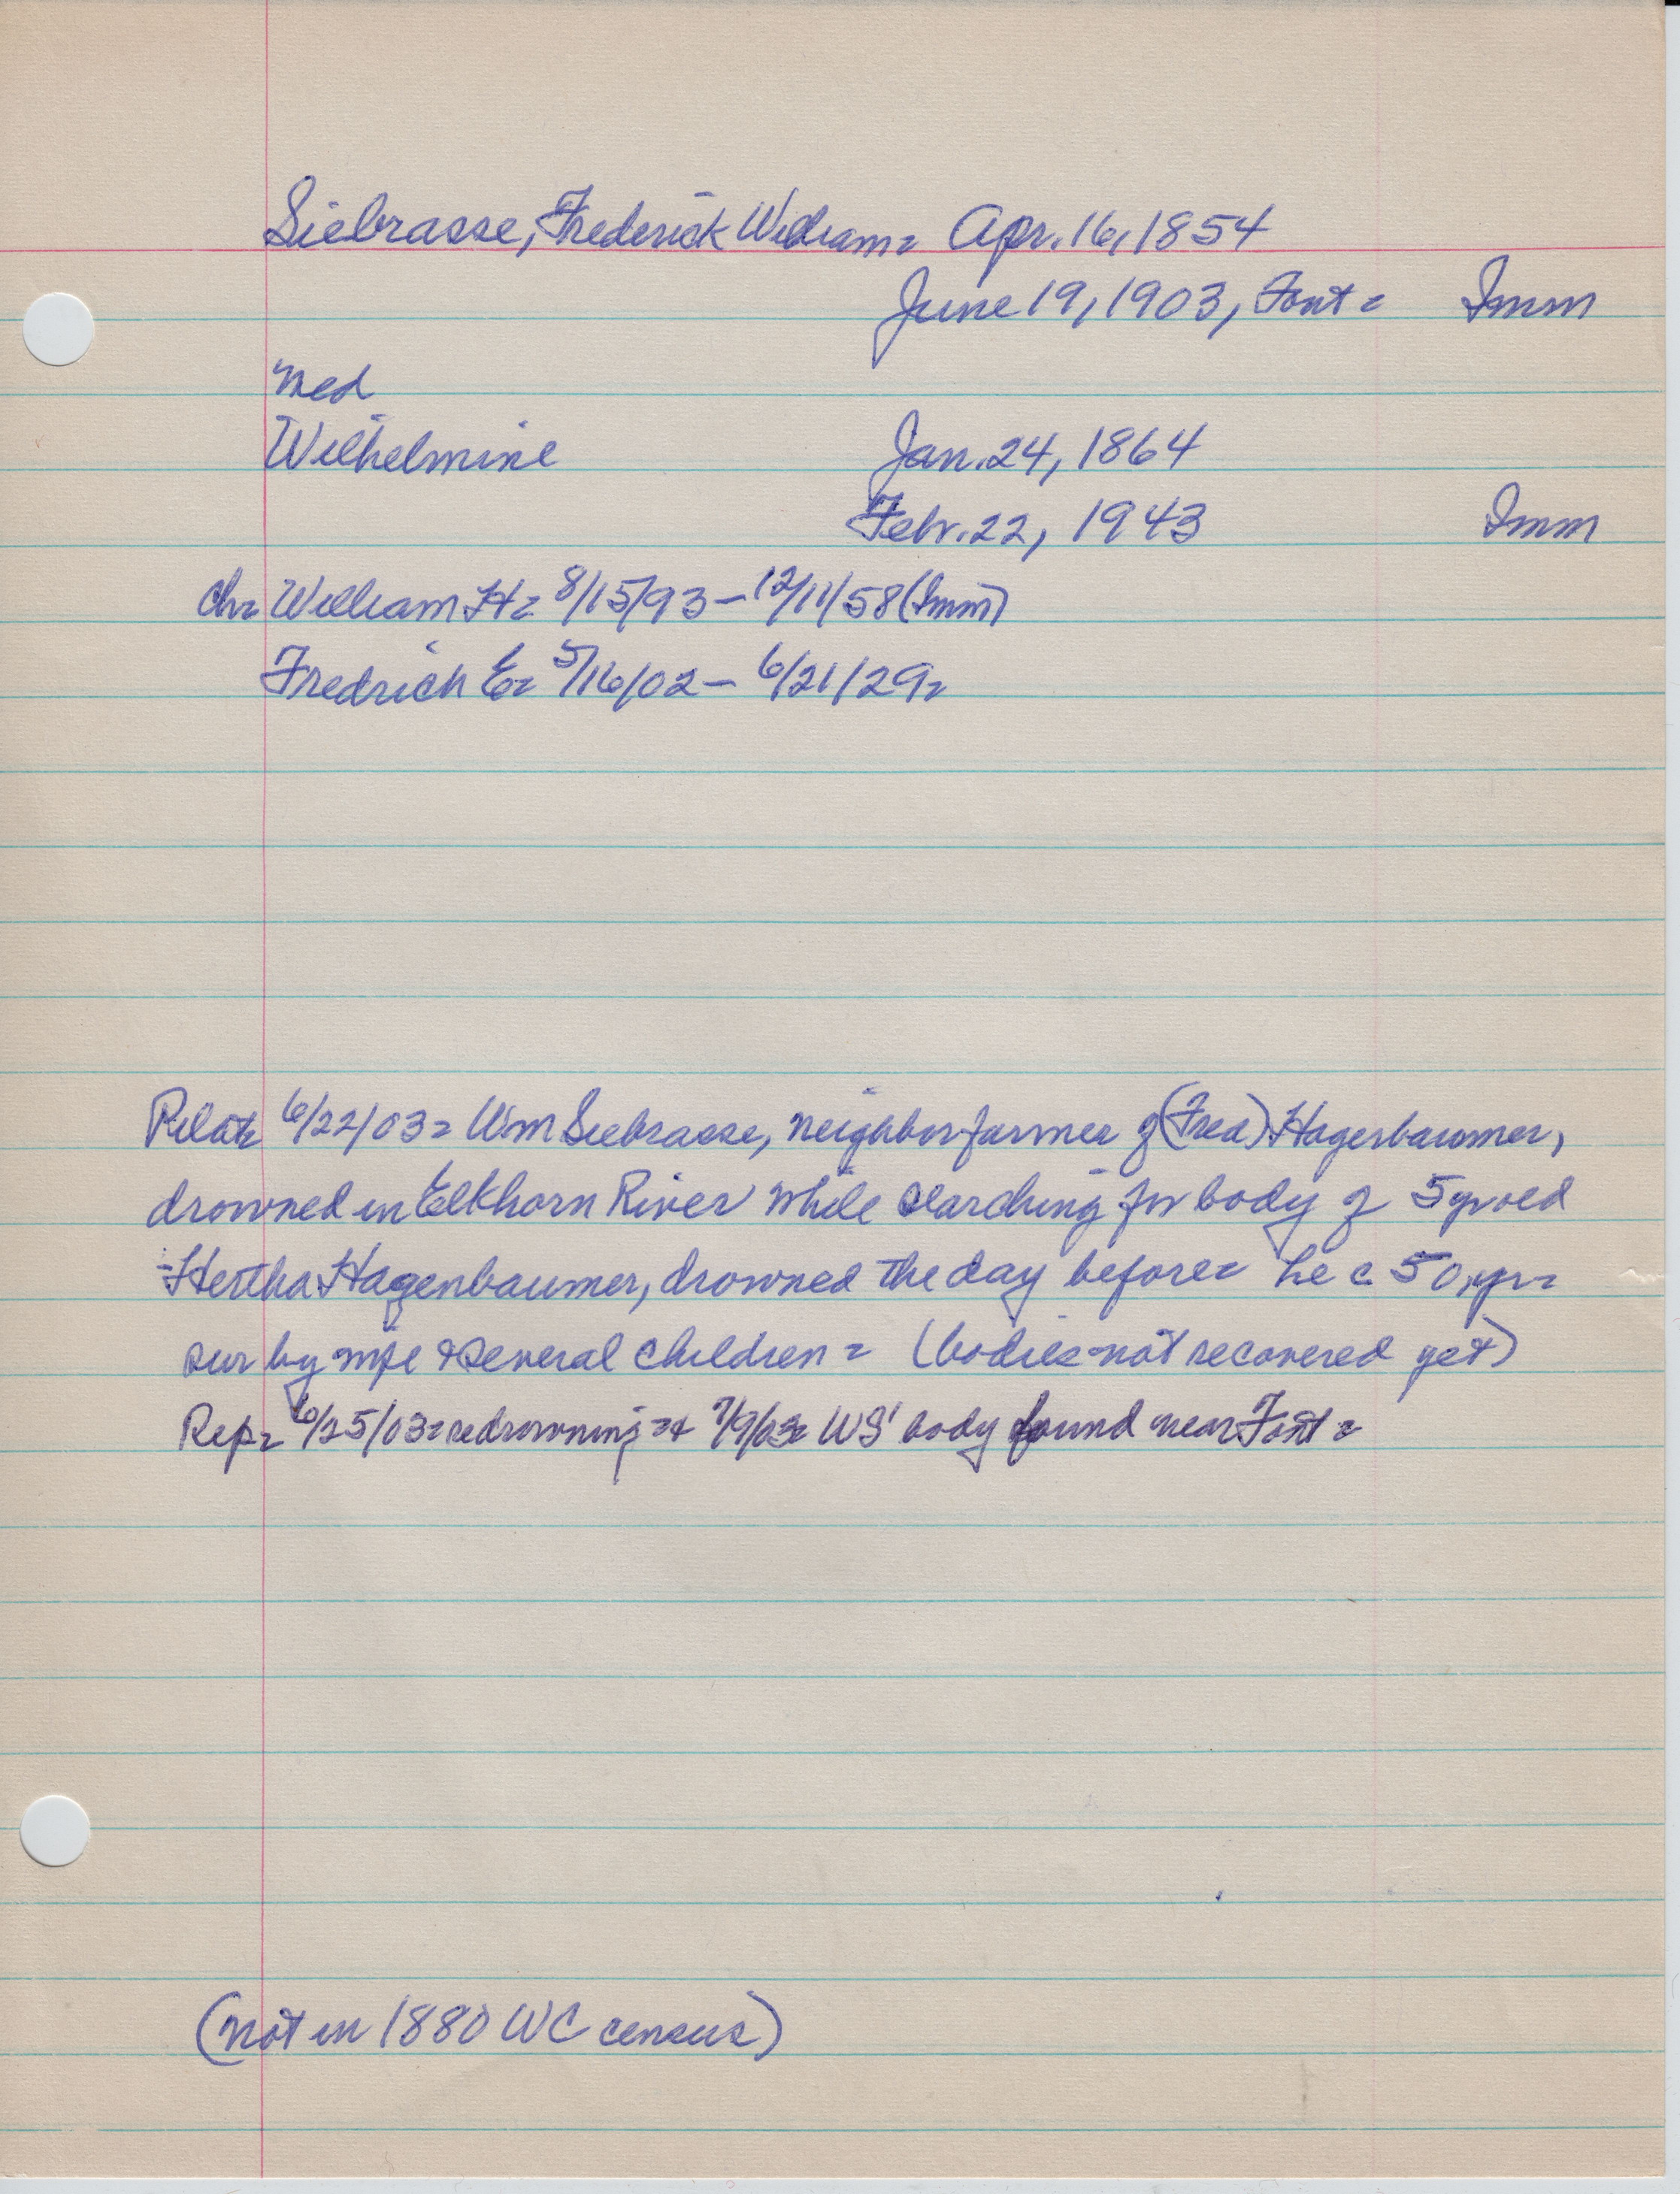 Siebrasse, Frederick William= Apr. 16, 1854
June 19, 1903, Font= Imm
med
Wilhelmine Jan. 24, 1864
Febr. 22, 1943 Imm
ch= William H= 8/15/93 - 12/11/58 (Imm)
Fredrich E= 5/16/02 - 6/21/29=
6/22/03= Wm Siebrasse, neighbor farmer of (Fred) Hagenbaumer,
drowned in Elkhorn River while searching for body of 5 yr old
Hertha Hagenbaumer, drowned the day before= he c 50 yr=
sur by wife & several children= (bodies not recovered yet)
Rep= 6/25/03= re drowning= & 7/9/03= WS' body found near Font=
(not in 1880 WC census)